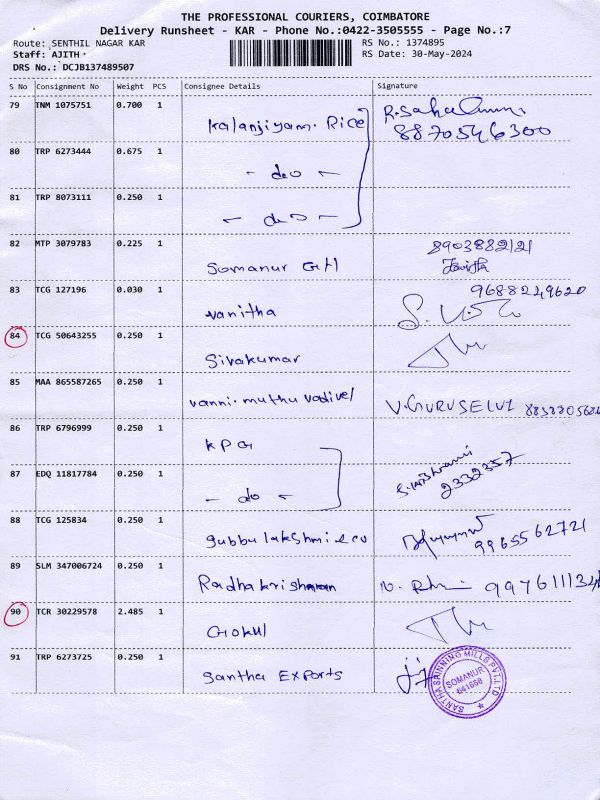 THE PROFESSIONAL COURIERS, COIMBATORE
Delivery Runsheet - KAR - Phone No.:0422-3505555 - Page No.:7
Route: SENTHIL NAGAR KAR
RS No.: 1374895
Staff: AJITH
RS Date: 30-May-2024
DRS No.: DCJB137489507
S No Consignment No Weight PCS Consignee Details Signature
79 TNM 1075751 0.700 1 Kalanjiyam. Rice
8870546300
80 TRP 6273444 0.675 1 - do -
81 TRP 8073111 0.250 1 - do -
82 MTP 3079783 0.225 1 Somanur GH
8903882121
83 TCG 127196 0.030 1 vanitha
9688249620
84 TCG 50643255 0.250 1 Sivakumar
85 MAA 865587265 0.250 1 vanni.muthu vadivel V.GURUSELVI
86 TRP 6796999 0.250 1 KPG
87 EDQ 11817784 0.250 1 - do -
2332357
88 TCG 125834 0.250 1
9965562721
89 SLM 347006724 0.250 1 Radhakrishanan
90 TCR 30229578 2.485 1 Gokul
91 TRP 6273725 0.250 1 Santha Exports
SANTHA SPINNING MILLS PVT.LTD
SOMANUR
641668